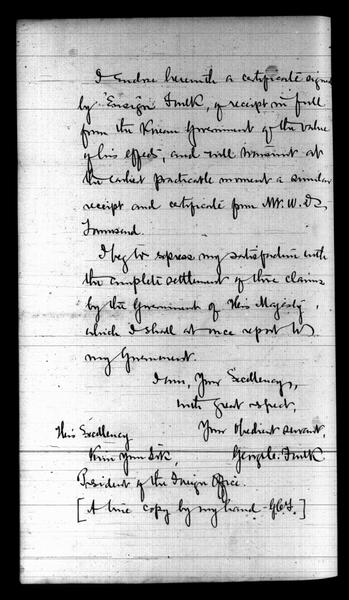 I enclose herewith a certificate signed
by Ensign Foulk, of receipt in full
from the Korean Government of the value
of his effects, and will transmit at
the earliest practicable moment a similar
receipt and certificate from Mr. W. D.
Townsend.
I beg to express my satisfaction with
the complete settlement of these claims
by the Government of His Majesty,
which I shall at once report to
my Government.
I am, Your Excellency,
with great respect,
Your obedient servant,
George C. Foulk
His Excellency
Kim Yun Sik,
President of the Foreign Office.
[A true copy by my hand - G.C.F.]